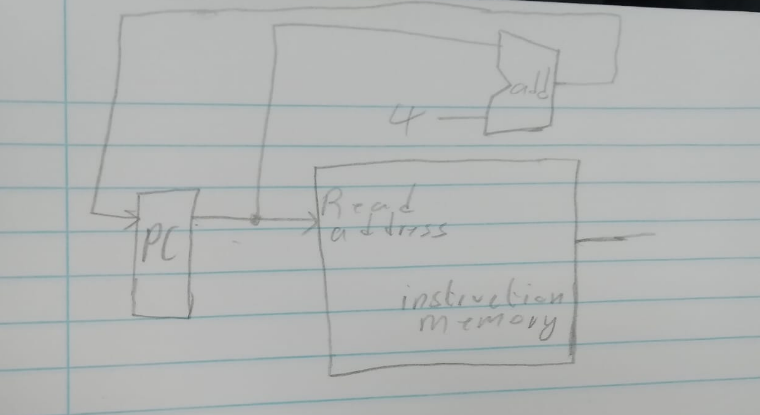 add
4
PC
Read
address
instruction
memory